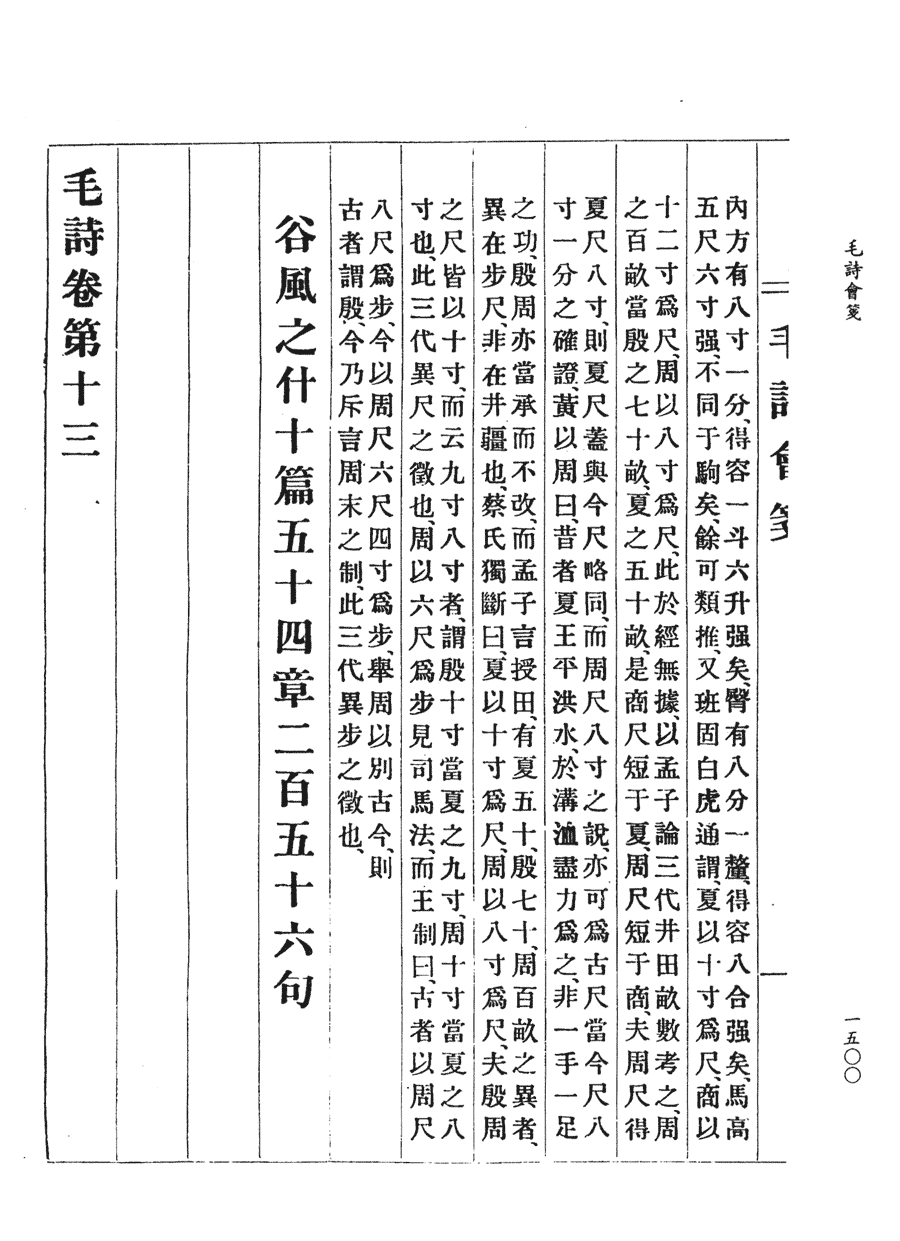 毛詩會箋
一五〇〇
毛詩會箋
內方有八寸一分、得容一斗六升强矣、臀有八分一釐、得容八合强矣、馬高
五尺六寸强、不同于駒矣、餘可類推、又班固白虎通謂、夏以十寸爲尺、商以
十二寸爲尺、周以八寸爲尺、此於經無據、以孟子論三代井田畝數考之、周
之百畝當殷之七十畝、夏之五十畝、是商尺短于夏、周尺短于商、夫周尺得
夏尺八寸、則夏尺蓋與今尺略同、而周尺八寸之說、亦可爲古尺當今尺八
寸一分之確證、黃以周曰、昔者夏王平洪水、於溝洫盡力爲之、非一手一足
之功、殷周亦當承而不改、而孟子言授田、有夏五十、殷七十、周百畝之異者、
異在步尺、非在井疆也、蔡氏獨斷曰、夏以十寸爲尺、周以八寸爲尺、夫殷周
之尺皆以十寸、而云九寸八寸者、謂殷十寸當夏之九寸、周十寸當夏之八
寸也、此三代異尺之徵也、周以六尺爲步見司馬法、而王制曰、古者以周尺
八尺爲步、今以周尺六尺四寸爲步、舉周以別古今、則
古者謂殷、今乃斥言周末之制、此三代異步之徵也、
谷風之什十篇五十四章二百五十六句
毛詩卷第十三